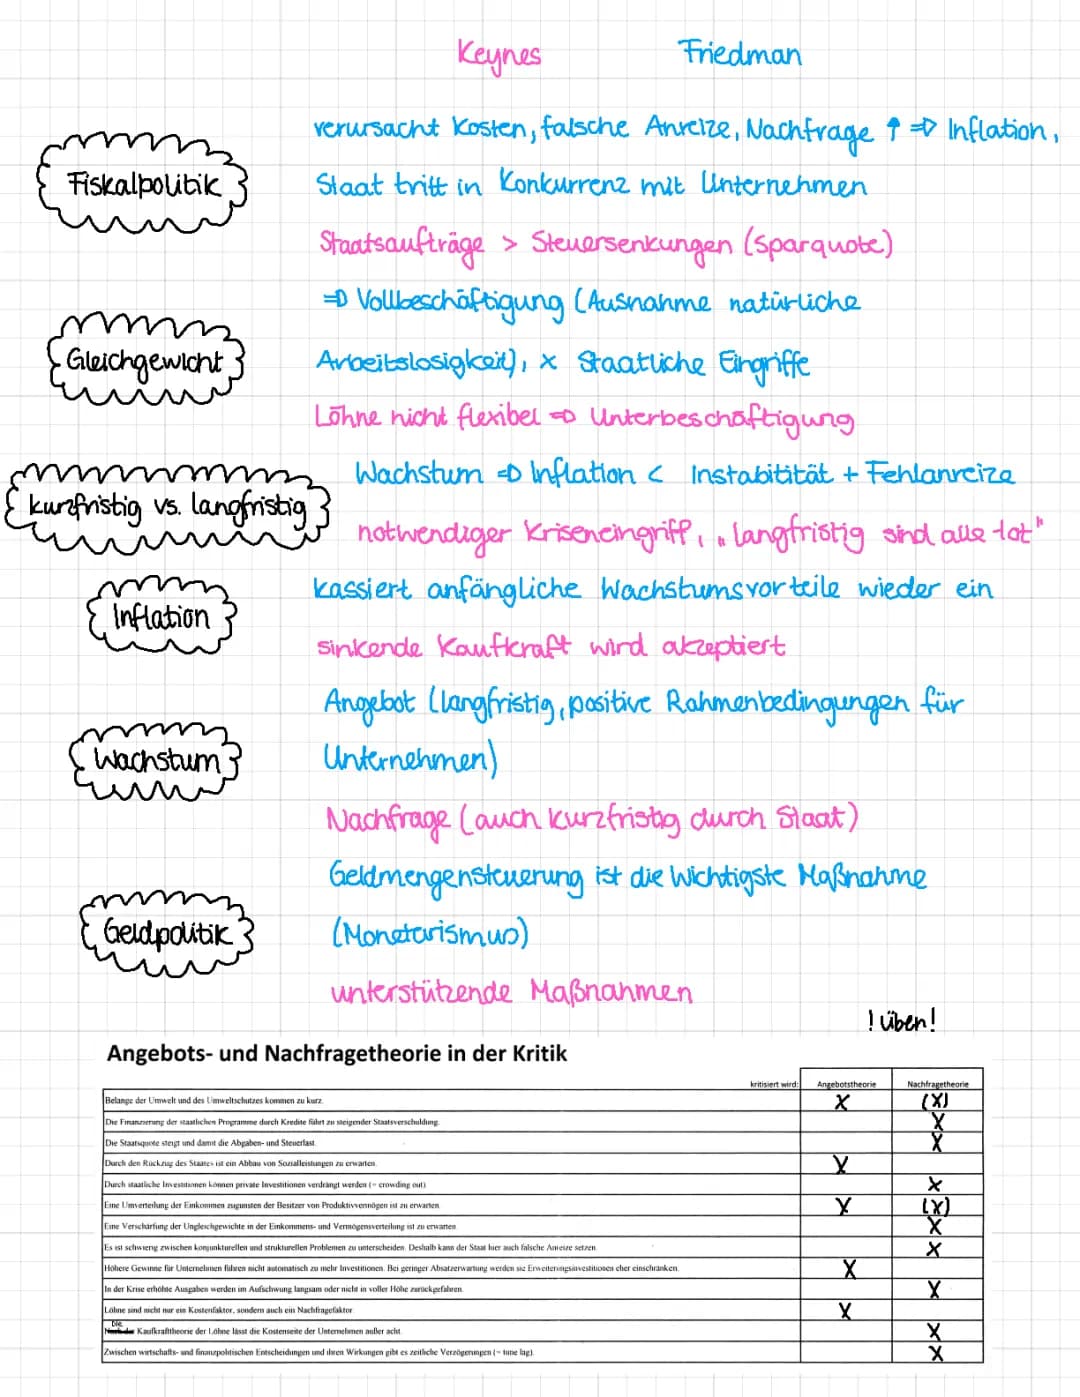 Keynes Friedman
verursacht Kosten, falsche Anreize, Nachfrage ↑ => Inflation,
Fiskalpolitik
Staat tritt in Konkurrenz mit Unternehmen
Staatsaufträge > Steuersenkungen (Sparquote)
=> Vollbeschäftigung (Ausnahme natürliche
Gleichgewicht
Arbeitslosigkeit), x Staatliche Eingriffe
Löhne nicht flexibel => Unterbeschäftigung
Wachstum => Inflation < Instabitität + Fehlanreize
kurzfristig vs. langfristig
notwendiger Kriseneingriff, „langfristig sind alle tot"
kassiert anfängliche Wachstumsvorteile wieder ein
Inflation
sinkende Kaufkraft wird akzeptiert
Angebot (langfristig, positive Rahmenbedingungen für
Wachstum
Unternehmen)
Nachfrage (auch kurzfristig durch Staat)
Geldmengensteuerung ist die wichtigste Maßnahme
Geldpolitik
(Monetarismus)
unterstützende Maßnahmen
! üben!
Angebots- und Nachfragetheorie in der Kritik
kritisiert wird: Angebotstheorie Nachfragetheorie
Belange der Umwelt und des Umweltschutzes kommen zu kurz. X (X)
Die Finanzierung der staatlichen Programme durch Kredite führt zu steigender Staatsverschuldung. X
Die Staatsquote steigt und damit die Abgaben- und Steuerlast. X
Durch den Rückzug des Staates ist ein Abbau von Sozialleistungen zu erwarten. X
Durch staatliche Investitionen können private Investitionen verdrängt werden (= crowding out). X
Eine Umverteilung der Einkommen zugunsten der Besitzer von Produktivvermögen ist zu erwarten. X (X)
Eine Verschärfung der Ungleichgewichte in der Einkommens- und Vermögensverteilung ist zu erwarten. X
Es ist schwierig zwischen konjunkturellen und strukturellen Problemen zu unterscheiden. Deshalb kann der Staat hier auch falsche Anreize setzen. X
Höhere Gewinne für Unternehmen führen nicht automatisch zu mehr Investitionen. Bei geringer Absatzerwartung werden sie Erweiterungsinvestitionen eher einschränken. X
In der Krise erhöhte Ausgaben werden im Aufschwung langsam oder nicht in voller Höhe zurückgefahren. X
Löhne sind nicht nur ein Kostenfaktor, sondern auch ein Nachfragefaktor X
Die Kaufkrafttheorie der Löhne lässt die Kostenseite der Unternehmen außer acht. X
Zwischen wirtschafts- und finanzpolitischen Entscheidungen und ihren Wirkungen gibt es zeitliche Verzögerungen (= time lag). X